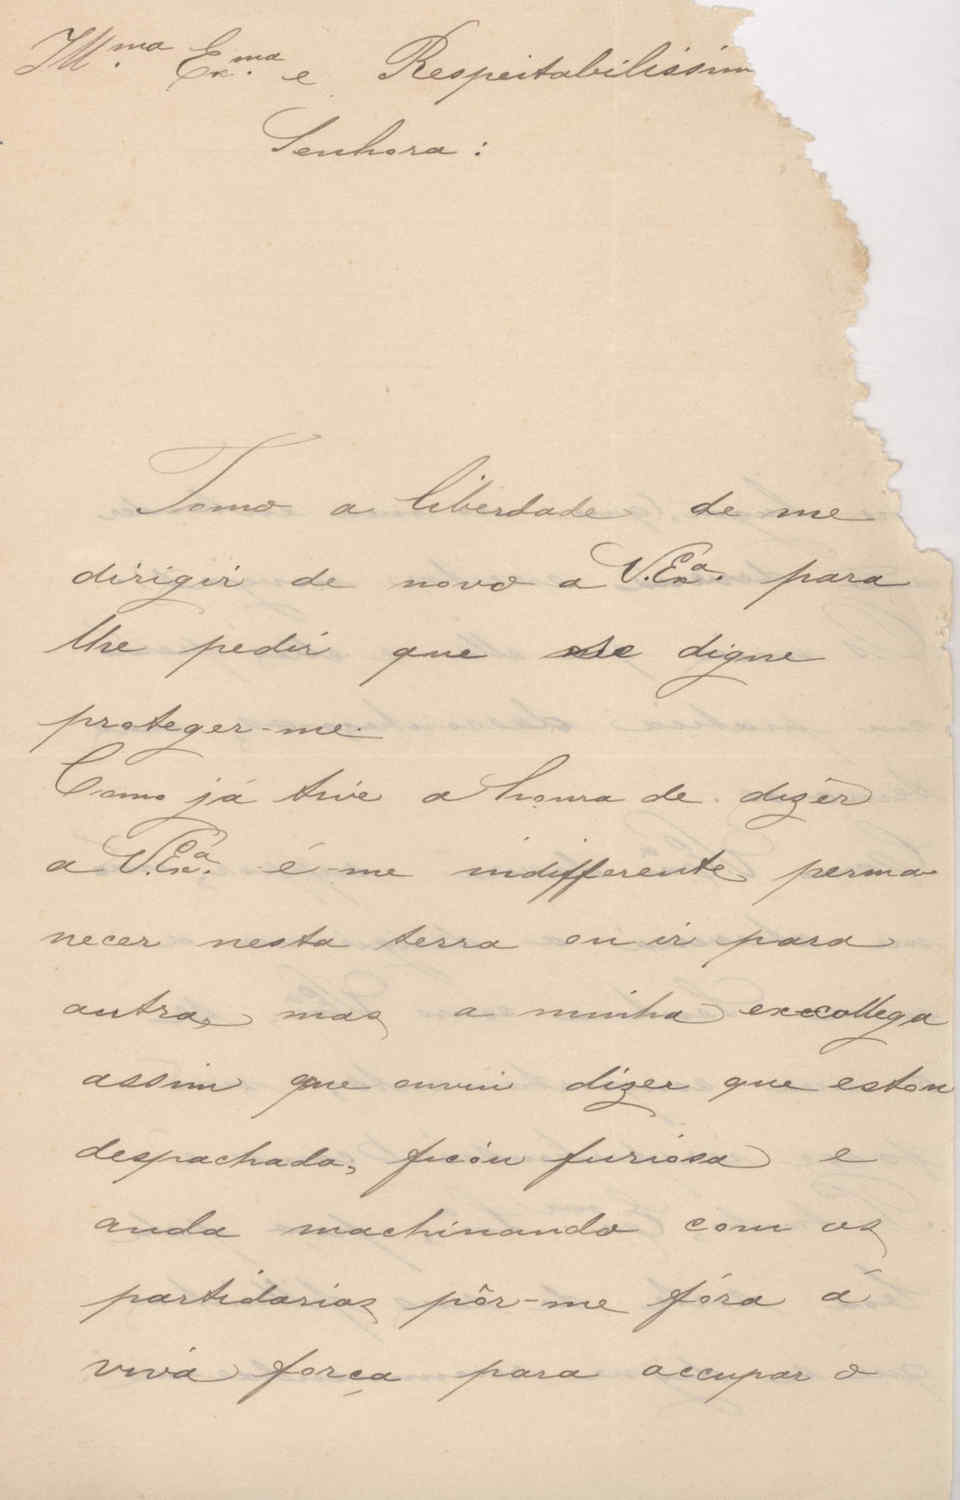 Ill.ma Ex.ma e Respeitabilissim
Senhora:
Tomo a liberdade de me
dirigir de novo a V. Ex.ª para
lhe pedir que se digne
proteger-me.
Como já tive a honra de dizêr
a V. Ex.ª é-me indifferente perma-
necer nesta terra ou ir para
outra, mas a minha ex-collega
assim que ouviu dizer que estou
despachada, ficou furiosa e
anda machinando com os
partidarios pôr-me fóra á
viva força para occupar o